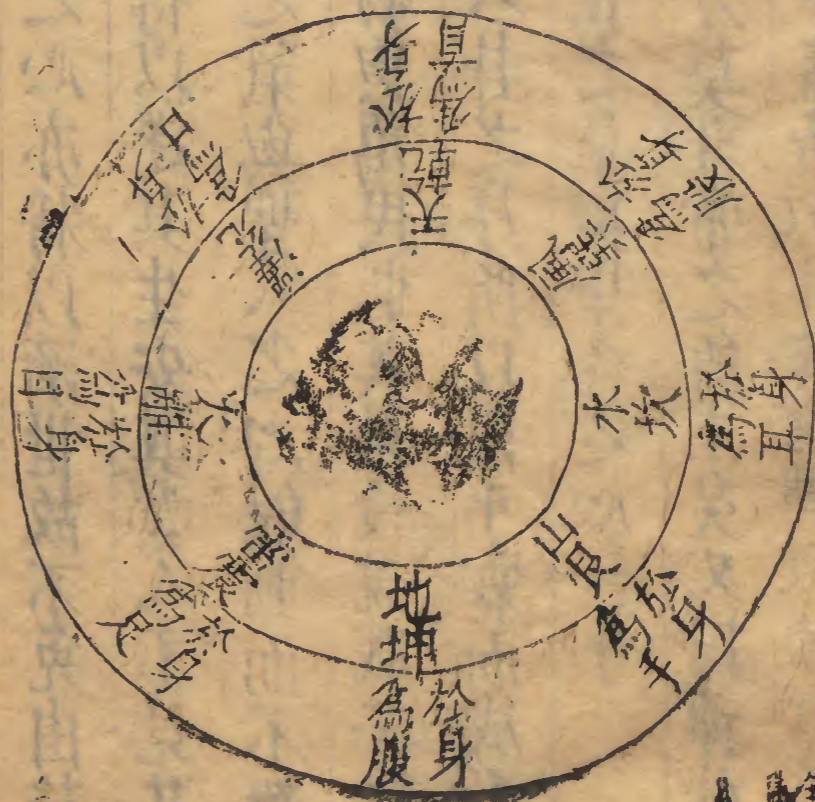 天乾
於身
為首
風巽
於身
為股
水坎
於身
為耳
山艮
於身
為手
地坤
於身
為腹
雷震
於身
為足
火離
於身
為目
澤兌
於身
為口